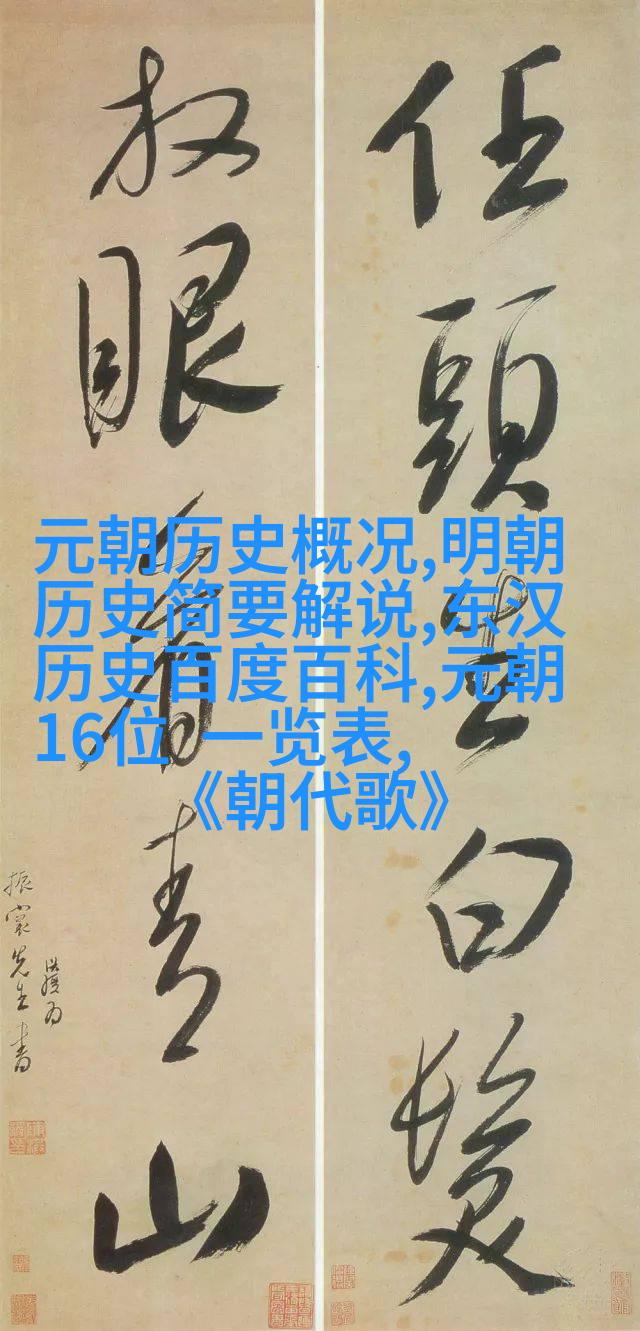 任頭生白髮
放眼看青山
振裳先生書
元朝历史概况,明朝
历史简要解说,东汉
历史百度百科,元朝
16位 一览表,
《朝代歌》